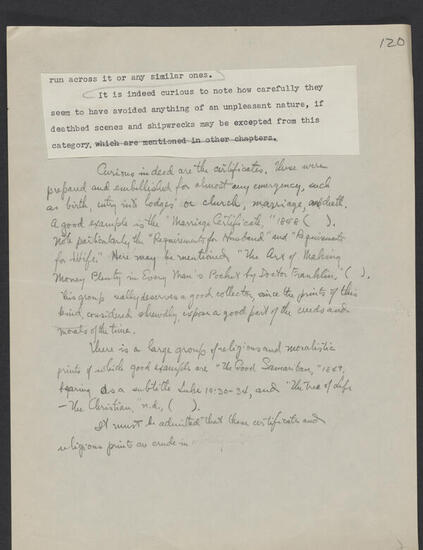 120
run across it or any similar ones.
It is indeed curious to note how carefully they
seem to have avoided anything of an unpleasant nature, if
deathbed scenes and shipwrecks may be excepted from this
category, which are mentioned in other chapters.
Curious indeed are the certificates. These were
prepared and embellished for almost any emergency, such
as birth, entry into lodges or church, marriage, and death.
A good example is the "Marriage Certificate," 1848 ( ).
Note particularly the "Requirements for Husband" and "Requirements
for Wife." Here may be mentioned "The Art of Making
Money Plenty in Every Man's Pocket by Doctor Franklin," ( ).
This group really deserves a good collector, since the prints of this
kind, considered shrewdly, expose a good part of the creeds and
morals of the time.
There is a large group of religious and moralistic
prints of which good examples are "The Good Samaritan," 1849,
bearing as a subtitle Luke 10:30-34, and "The Tree of Life
— The Christian," n.d., ( ).
It must be admitted that these certificate and
religious prints are crude in